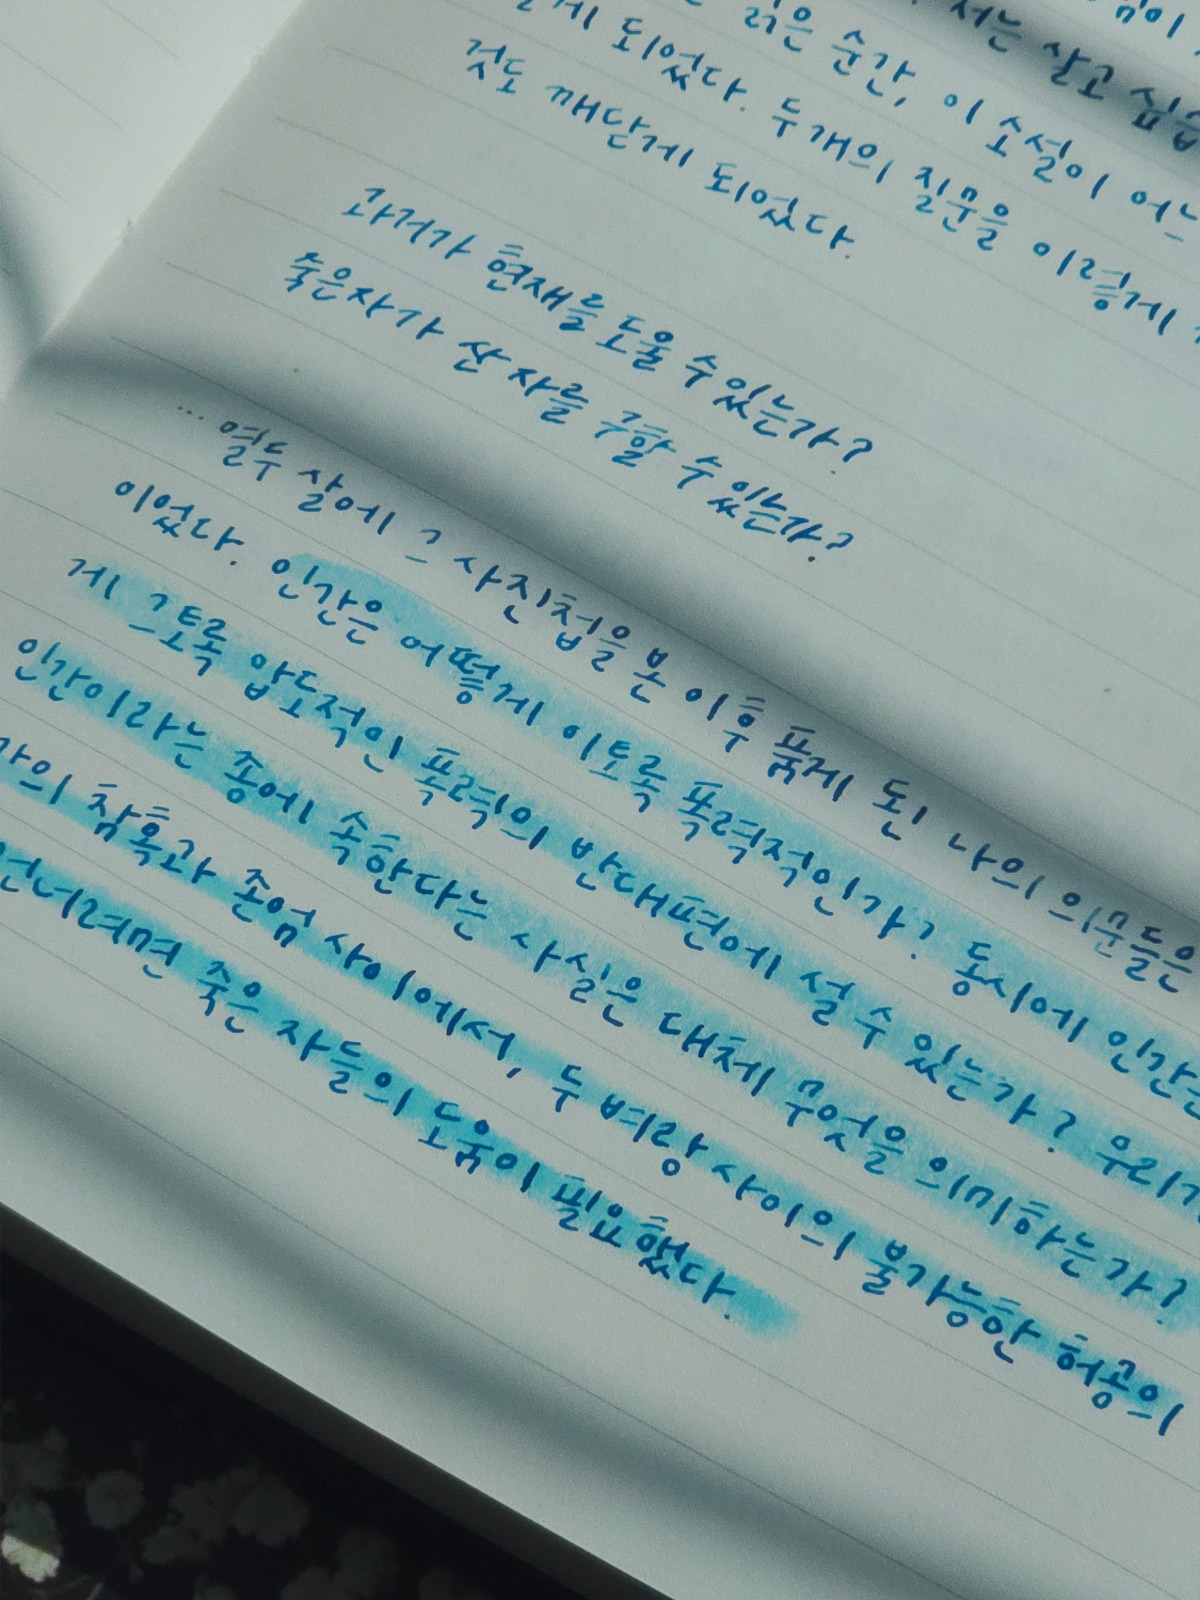 서는 살고 싶습
읽은 순간, 이 소설이 어느
게 되었다. 두개의 질문을 이렇게
것도 깨닫게 되었다.
과거가 현재를 도울 수 있는가?
죽은자가 산 자를 구할 수 있는가?
... 열두 살에 그 사진첩을 본 이후 품게 된 나의 의문들은
이었다. 인간은 어떻게 이토록 폭력적인가? 동시에 인간은
게 그토록 압도적인 폭력의 반대편에 설 수 있는가? 우리가
인간이라는 종에 속한다는 사실은 대체 무엇을 의미하는가?
의 참혹과 존엄 사이에서, 두 벼랑 사이의 불가능한 허공의
건너려면 죽은 자들의 도움이 필요했다.